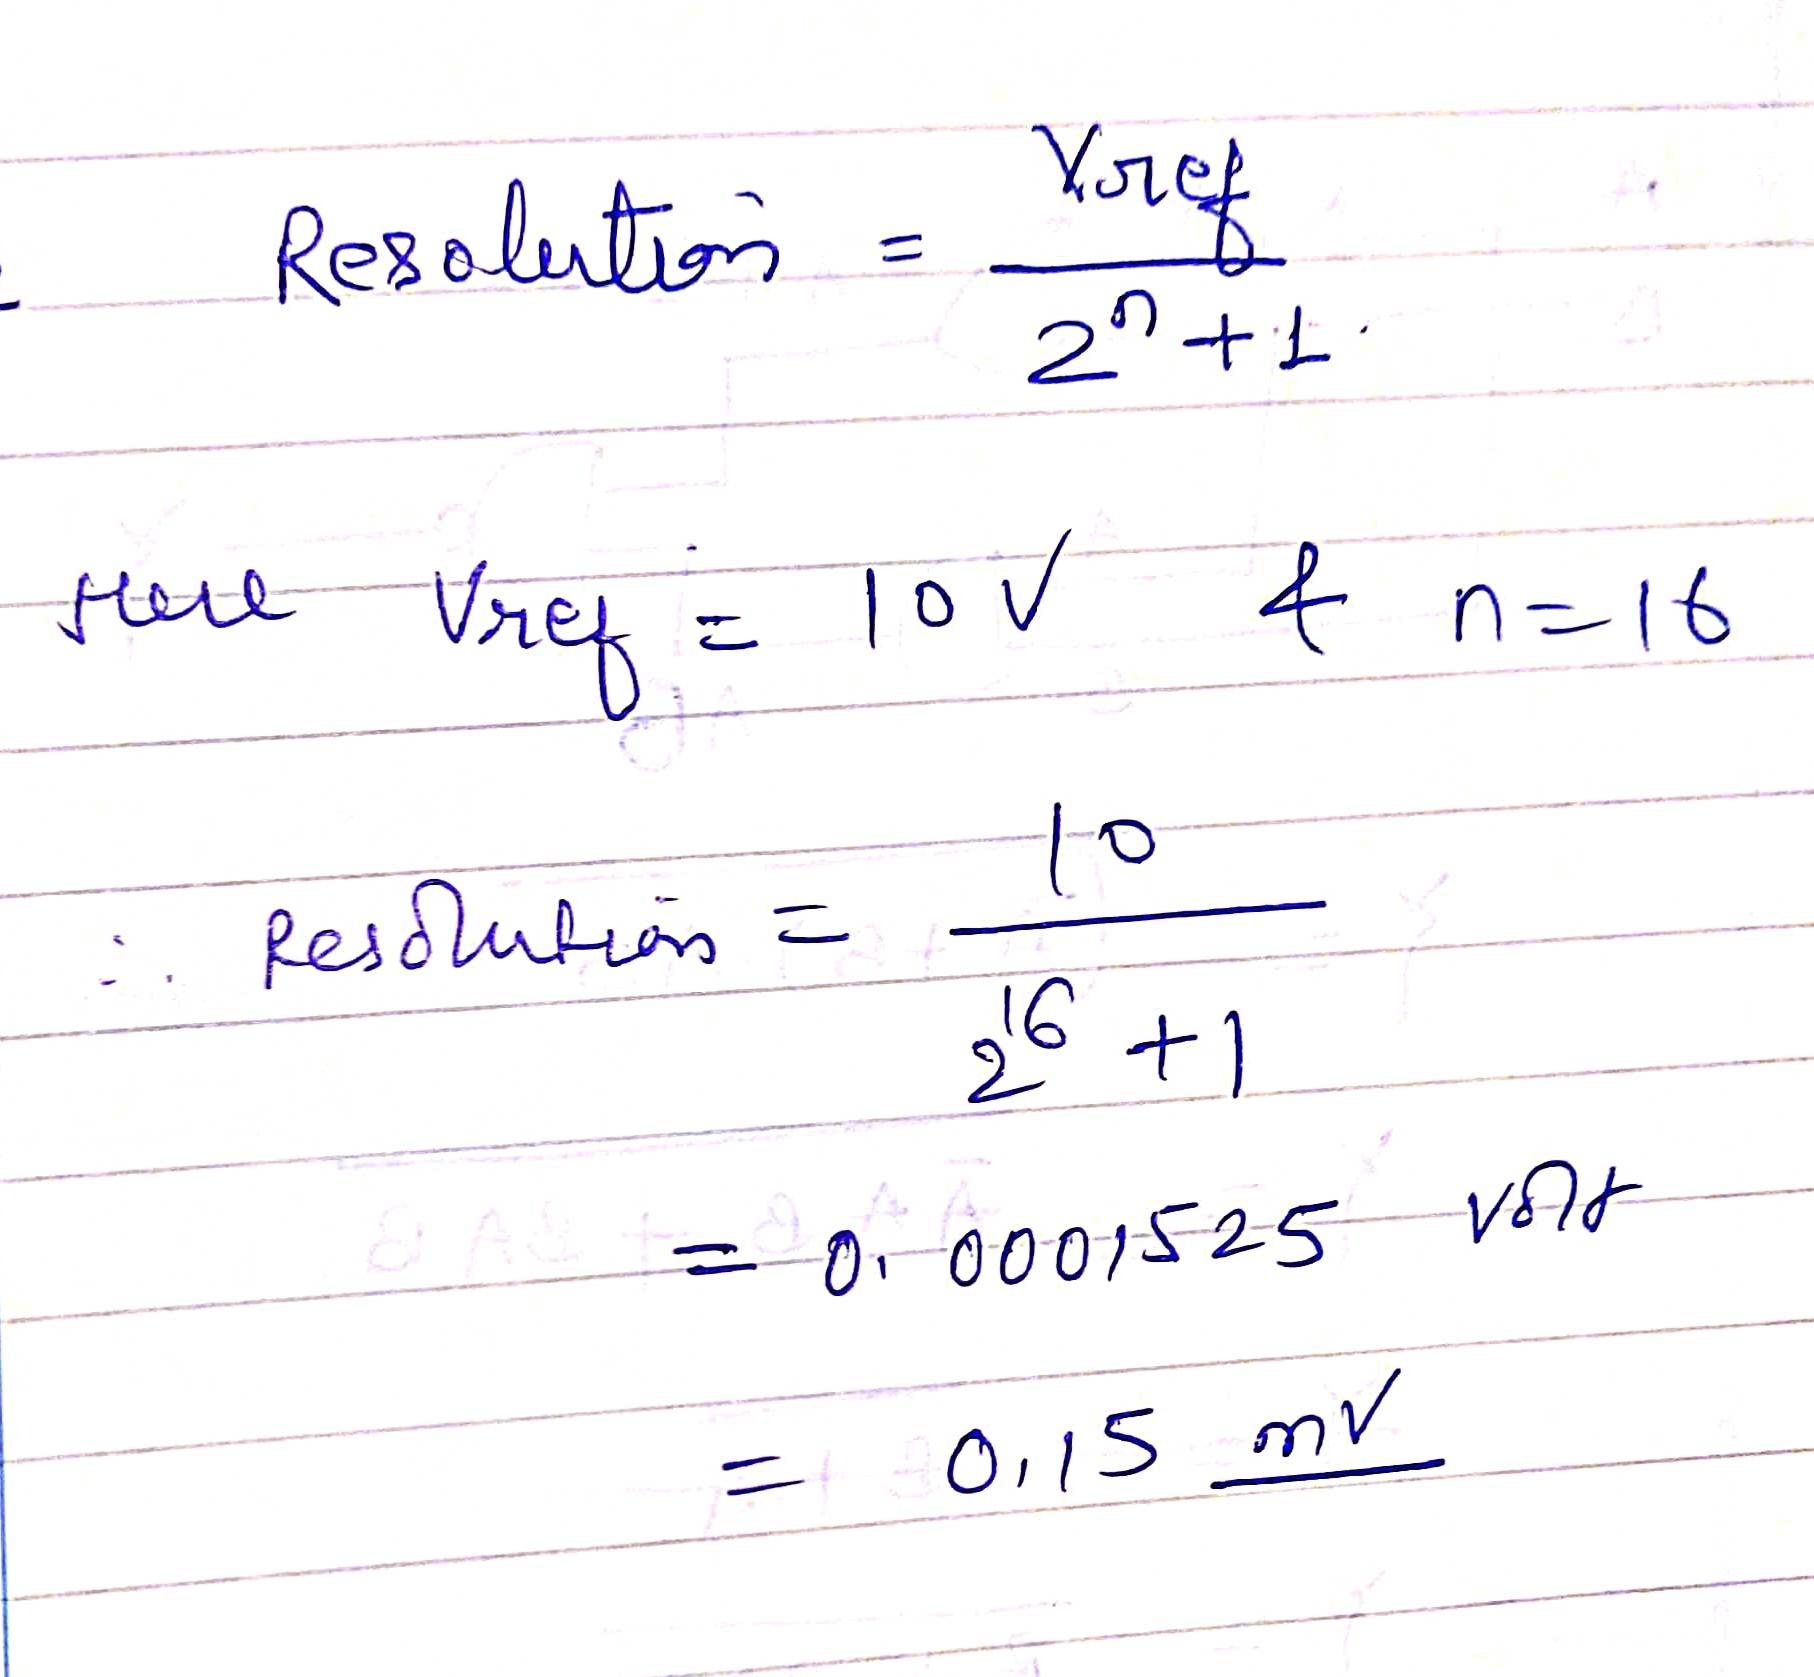 Resolution = Vref / 2ⁿ + 1
Here Vref = 10 V & n = 16
∴ Resolution = 10 / 2¹⁶ + 1
= 0.0001525 volt
= 0.15 mV